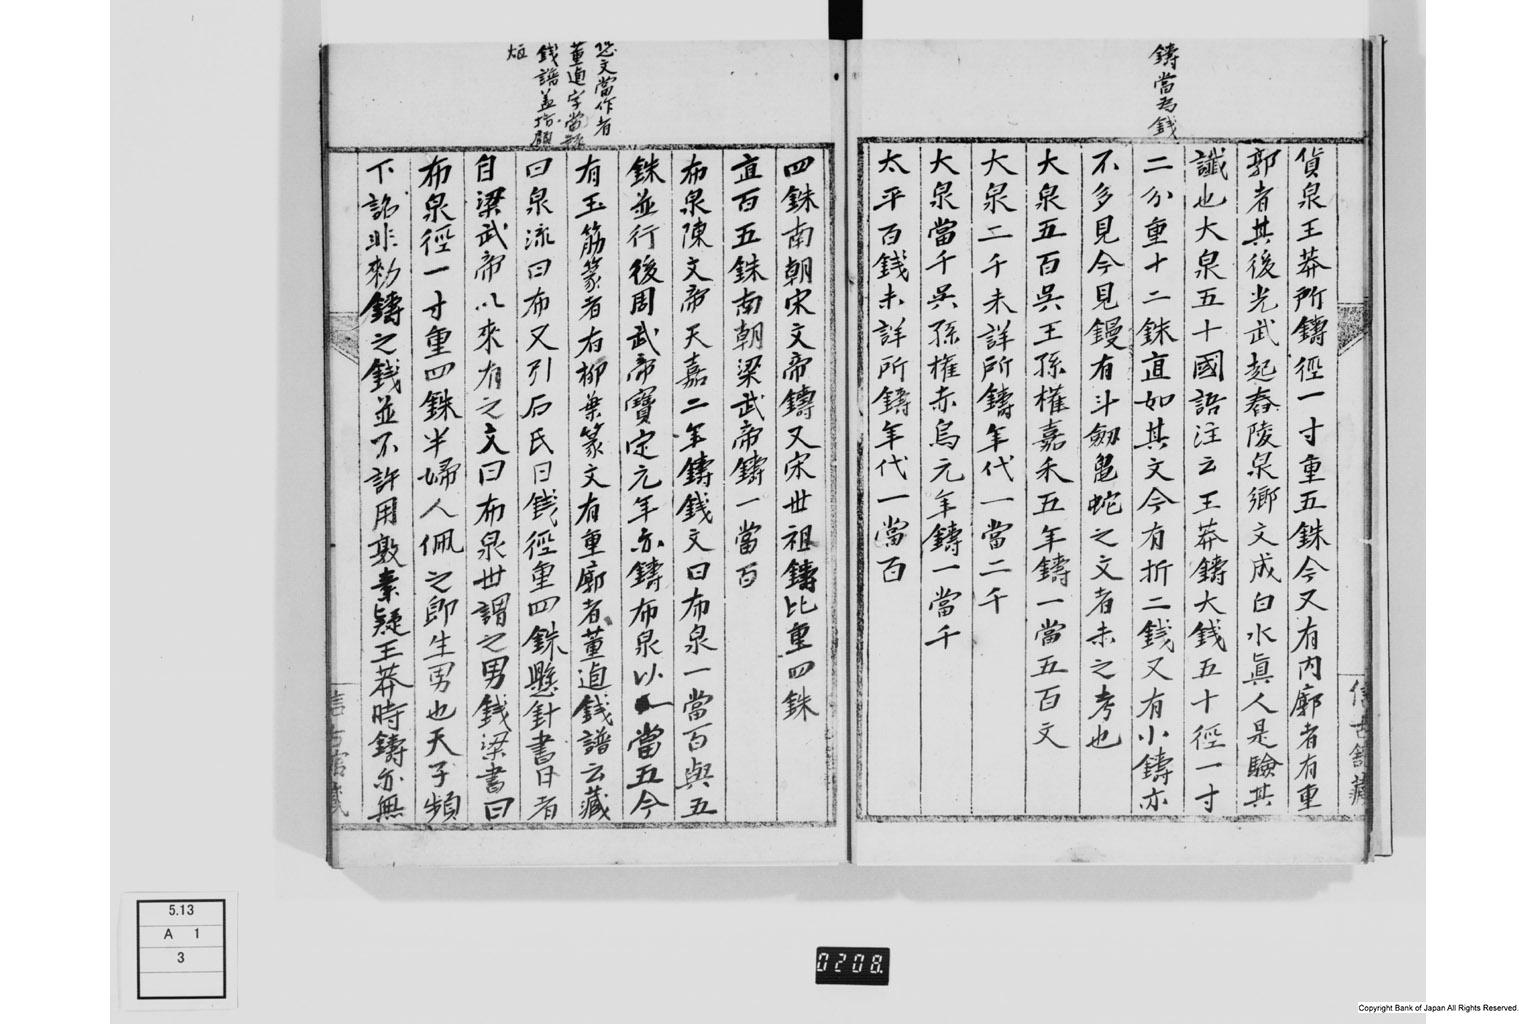 鑄當為錢
貨泉王莽所鑄徑一寸重五銖今又有內廓者有重
郭者其後光武起舂陵泉鄉文成白水眞人是驗其
讖也大泉五十國語注云王莽鑄大錢五十徑一寸
二分重十二銖直如其文今有折二錢又有小鑄亦
不多見今見鏝有斗劔龜蛇之文者未之考也
大泉五百吳王孫權嘉禾五年鑄一當五百文
大泉二千未詳所鑄年代一當二千
大泉當千吳孫權赤烏元年鑄一當千
太平百錢未詳所鑄年代一當百
文當作者
董逌字當
錢譜蓋
四銖南朝宋文帝鑄又宋世祖鑄比重四銖
直百五銖南朝梁武帝鑄一當百
布泉陳文帝天嘉二年鑄錢文曰布泉一當百與五
銖並行後周武帝寶定元年亦鑄布泉以一當五今
有玉筋篆者有柳葉篆文有重廓者董逌錢譜云藏
曰泉流曰布又引石氏曰錢徑重四銖懸針書曰者
自梁武帝以來有之文曰布泉世謂之男錢梁書曰
布泉徑一寸重四銖半婦人佩之即生男也天子頻
下詔非勑鑄之錢並不許用敦素疑王莽時鑄亦無
5.13
A 1
3
0208.
Copyright Bank of Japan All Rights Reserved.